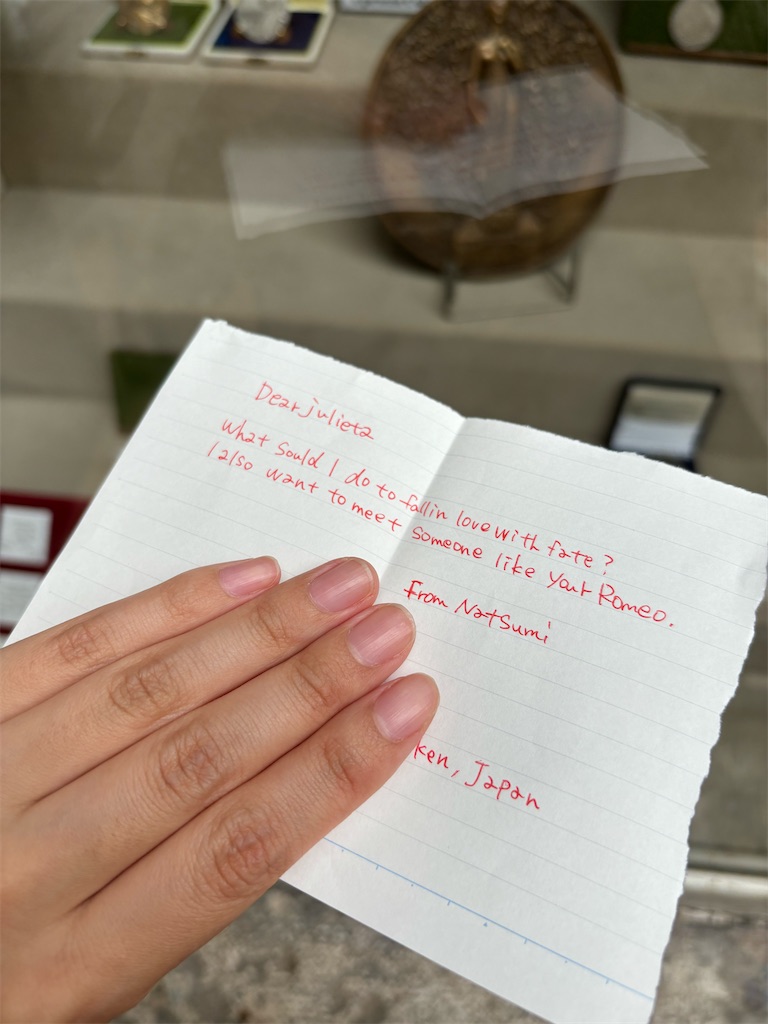 Dear julieta
What sould I do to fall in love with fate?
I also want to meet someone like your Romeo.
From Natsumi
ken, Japan